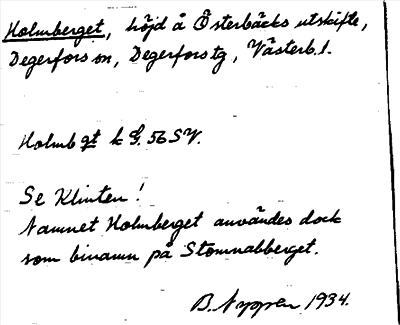 Holmberget, höjd å Österbäcks utskifte,
Degerfors sn, Degerfors tg, Västerb. l.
Holmbgt k G. 56 SV.
Se Klinten!
Namnet Holmberget användes dock
som binamn på Stomnabberget.
B. Nyppen 1934.